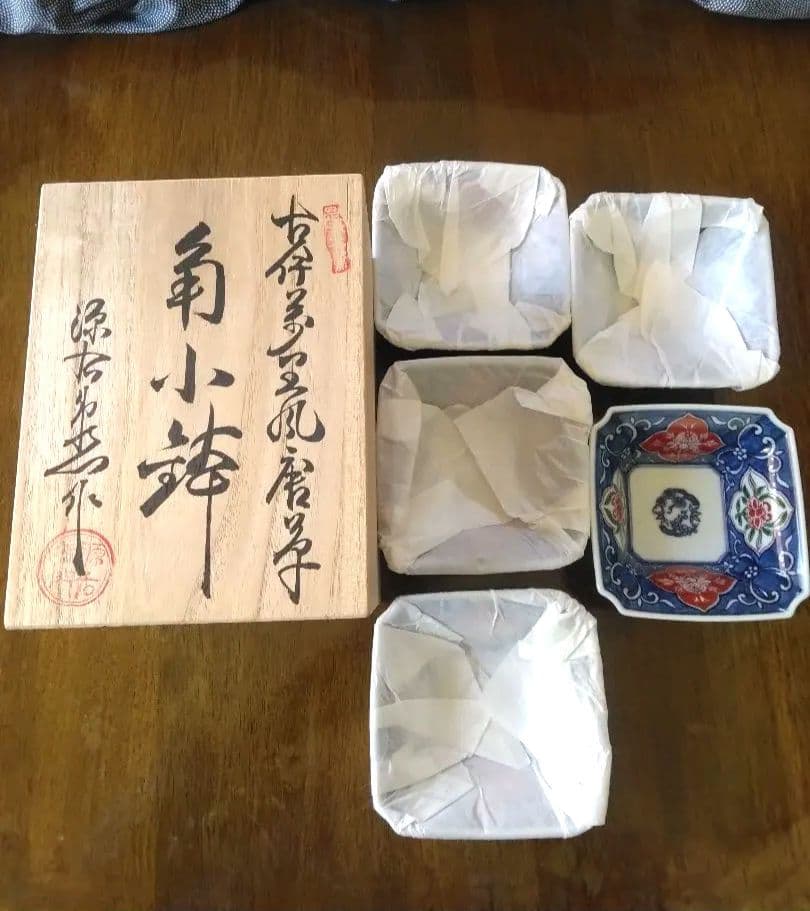 古伊万里風唐草
角小鉢
源右衛門作